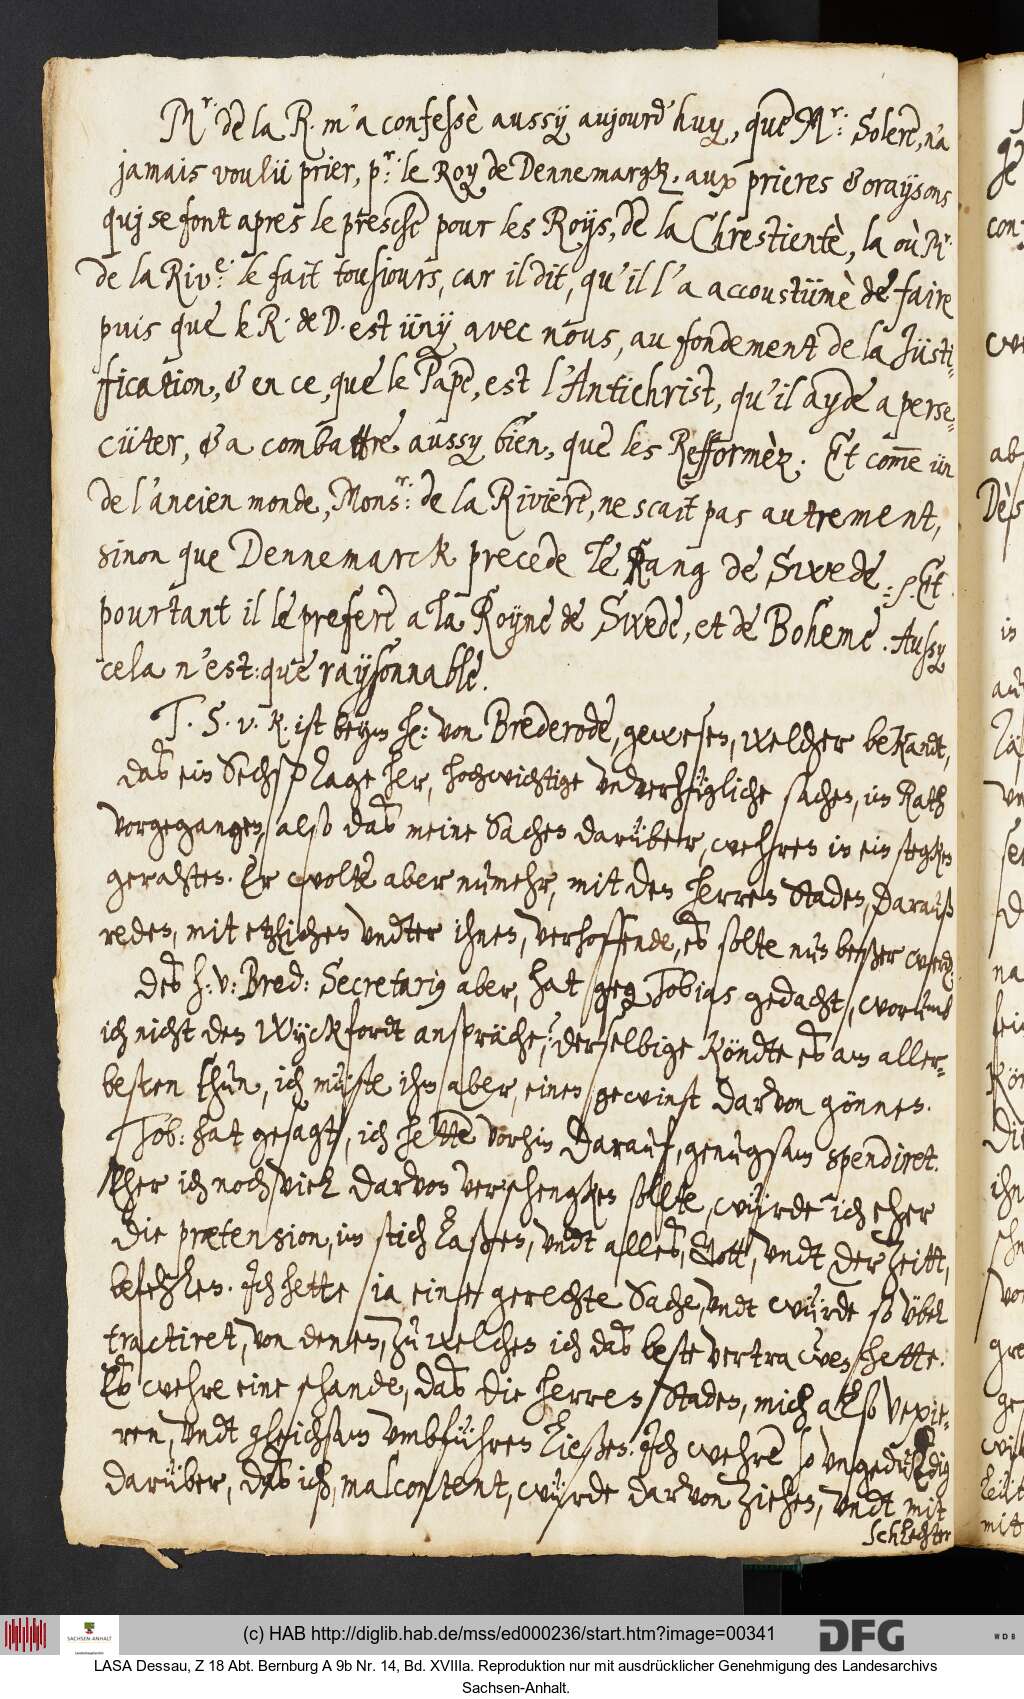 Mr. de la R. m'a confessè aussÿ aujourd'huy, que Mr: Solere, n'a
jamais voulü prier, pr: le Roy de Dennemargk, aux prieres & oraÿsons
quj se font apres le presche pour les Roÿs, de la Chrestientè, la où Mr.
de la Rive: le fait tousjours, car il dit, qu'il l'a accoustümè de faire
puis que le R. de D. est ünÿ avec nous, au fondement de la Jüsti-
fication, & en ce, que le Pape, est l'Antichrist, qu'il ayde a perse-
cüter, & a combattre aussy bien, que les Refformèz. Et com̅e ün
de l'ancien monde, Monsr: de la Riviere, ne scait pas autrement,
sinon que Dennemarck precede le Rang de Swede. Et
pourtant il le prefere a la Royne de Swede, et de Boheme. Aussy
cela n'est: que raÿsonnable.
T. S. v. K. ist beym H: von Brederode, gewesen, welcher bekandt,
das ein Sechß Tage her, hochwichtige undverhfügliche sachen, im Rath
vorgegangen, also das meine Sachen darüber, wehren in ein stegken
gerahten. Er wolte aber nunmehr, mit den Herren Staden, darauß
reden, mit etzlichen undter ihnen, verhoffende, es solte nun beßer werd
Des H: v: Bred: Secretarius aber, hat geg Tobias gedacht, worumb
ich nicht den Wyckfordt anspräche? derselbige köndte es am aller-
besten thun, ich müste ihm aber, einen gewinst darvon gönnen.
Tob: hat gesagt, ich hette vorhin darauf, genugsam spendiret.
Eher ich noch viel darvon verschengken sollte, würde ich eher
die prætension, im stich laßen, undt alles, Gott, undt der Zeitt,
befehlen. Ich hette ja eine gerechte Sache, undt würde so übel
tractiret, von denen, zu welchen ich das beste vertrawen hette.
Es wehre eine schande, das die Herren Staden, mich also vexie-
ren, undt gleichsam umbführen ließen. Ich wehre so ungeduldig
darüber, das ich, malcontent, würde darvon ziehen, undt mit
schlechter
(c) HAB http://diglib.hab.de/mss/ed000236/start.htm?image=00341
SACHSEN-ANHALT
DFG
WDB
LASA Dessau, Z 18 Abt. Bernburg A 9b Nr. 14, Bd. XVIIIa. Reproduktion nur mit ausdrücklicher Genehmigung des Landesarchivs
Sachsen-Anhalt.